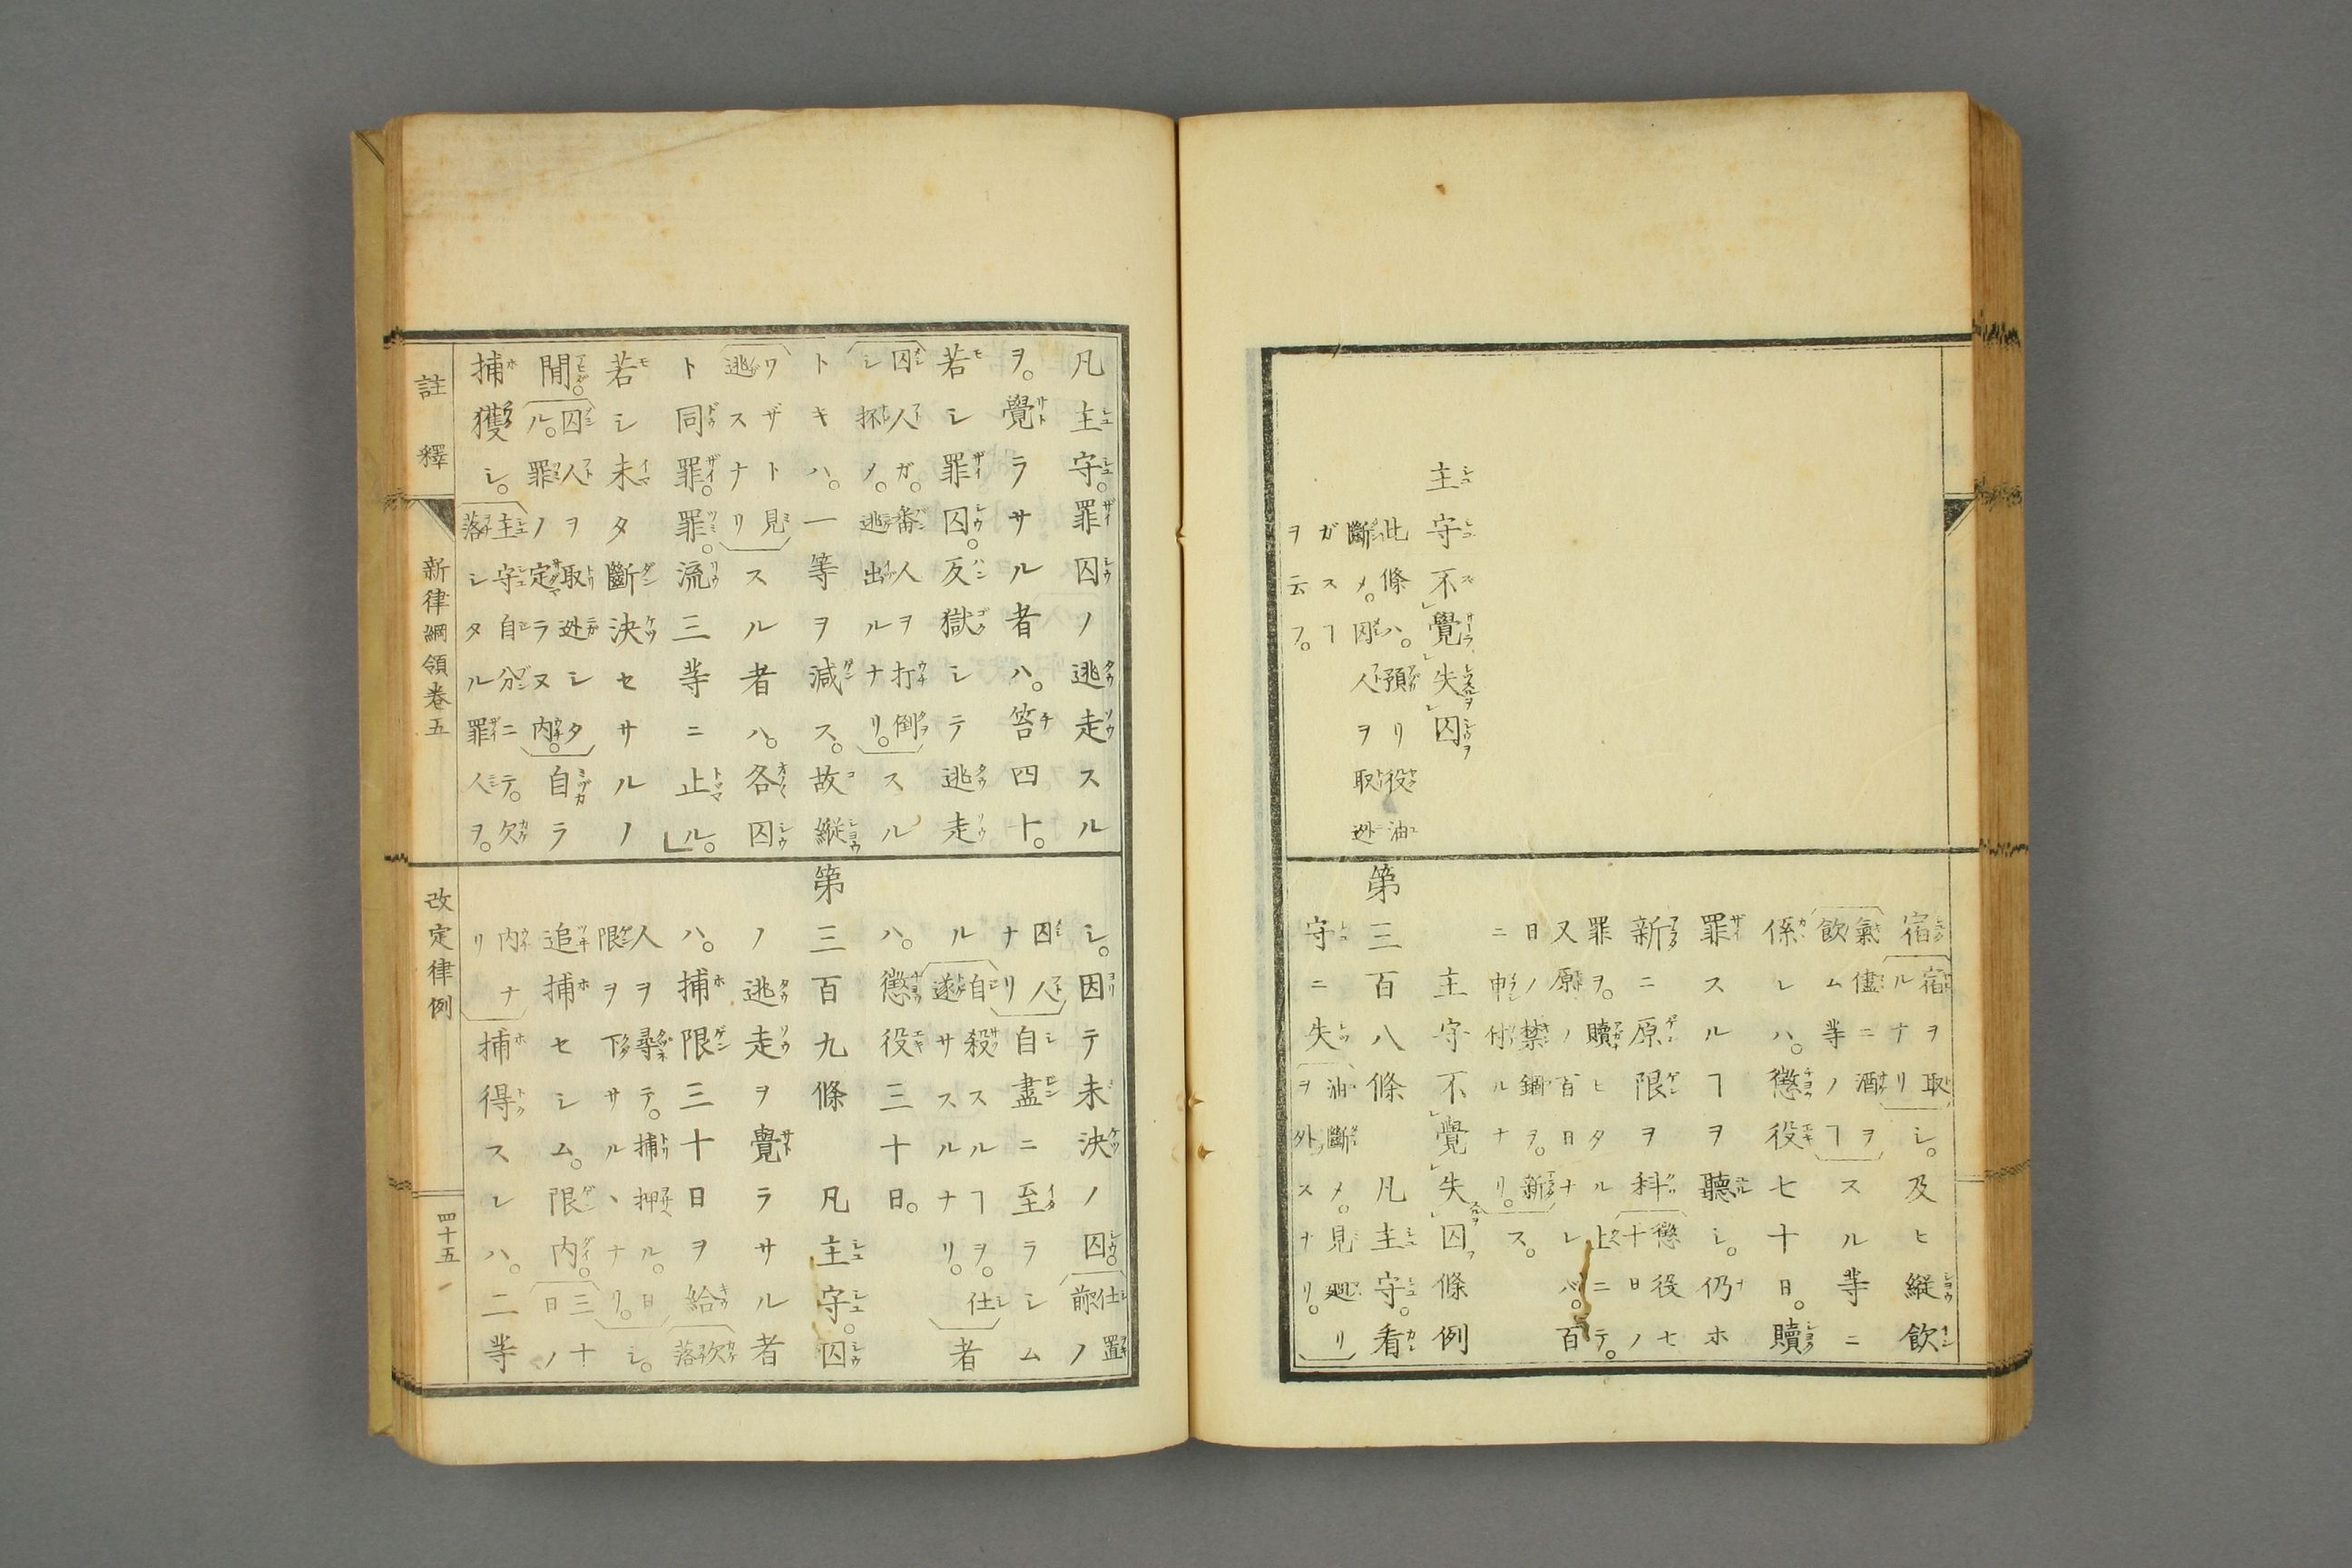 主守不覺失囚
此條ハ。預リ役油
斷メ。囚人ヲ取迯
ガスヿ
ヲ云フ。
宿宿ルナリヲ取シ。及ヒ縱飲
氣儘ニ酒ヲ飲ム等ノヿスル等ニ
係レハ。懲役七十日。贖
罪スルヿヲ聽シ。仍ホ
新ニ原限ヲ科懲役七十日ノ
罪ヲ。贖ヒタル上ニテ。
又原ノ百日ナレバ。百
日ノ禁錮ヲ。新
ニ申付ルナリ。ス。
主守不覺失囚條例
第三百八條 凡主守。看
守ニ失油斷メ。見廻リヲ外スナリ。
凡主守。罪囚ノ逃走スル
ヲ。覺ラサル者ハ。笞四十。
若シ罪囚。反獄シテ逃走
囚人ガ。番人ヲ打倒シ抔メ。逃出ルナリ。スル
トキハ。一等ヲ減ス。故縱
ワザト見逃スナリスル者ハ。各囚
ト同罪。罪。流三等ニ止ル。
若シ未タ斷決セサルノ
間。囚人ヲ取迯シタル。罪ノ定ラヌ内。自ラ
捕獲シ。主守自分ニテ。欠落シタル罪人ヲ。
シ。因テ未決ノ囚。仕置前ノ
囚人ナリ自盡ニ至ラシム
ル自殺スルヿヲ。仕遂サスルナリ。者
ハ。懲役三十日。
第三百九條 凡主守。囚
ノ逃走ヲ覺ラサル者
ハ。捕限三十日ヲ給欠落
人ヲ尋テ。捕押ル。日限ヲ下サルヽナリ。シ。
追捕セシム。限内。三十日ノ
内ナリ捕得スレハ。二等
註釋
新律綱領卷五
改定律例
四十五